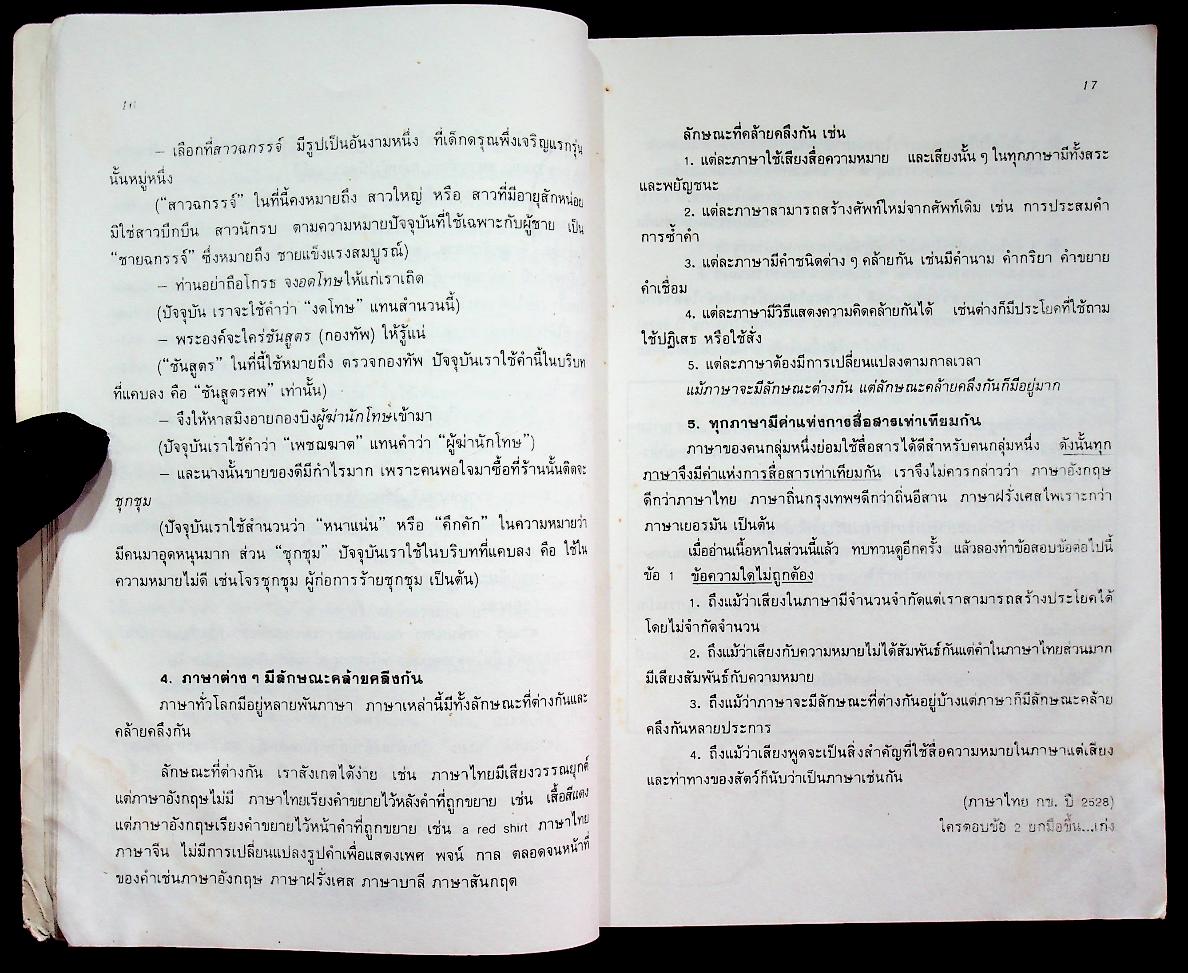 16
– เลือกที่สาวฉกรรจ์ มีรูปเป็นอันงามหนึ่ง ที่เด็กดรุณพึ่งเจริญแรกรุ่น
นั้นหมู่หนึ่ง
(“สาวฉกรรจ์” ในที่นี้คงหมายถึง สาวใหญ่ หรือ สาวที่มีอายุสักหน่อย
มิใช่สาวบึกบึน สาวนักรบ ตามความหมายปัจจุบันที่ใช้เฉพาะกับผู้ชาย เป็น
“ชายฉกรรจ์” ซึ่งหมายถึง ชายแข็งแรงสมบูรณ์)
– ท่านอย่าถือโกรธ จงอดโทษให้แก่เราเถิด
(ปัจจุบัน เราจะใช้คำว่า “งดโทษ” แทนสำนวนนี้)
– พระองค์จะใคร่ชันสูตร (กองทัพ) ให้รู้แน่
(“ชันสูตร” ในที่นี้ใช้หมายถึง ตรวจกองทัพ ปัจจุบันเราใช้คำนี้ในบริบท
ที่แคบลง คือ “ชันสูตรศพ” เท่านั้น)
– จึงให้หาสมิงอายกองบิงผู้ฆ่านักโทษเข้ามา
(ปัจจุบันเราใช้คำว่า “เพชฌฆาต” แทนคำว่า “ผู้ฆ่านักโทษ”)
– และนางนั้นขายของดีมีกำไรมาก เพราะคนพอใจมาซื้อที่ร้านนั้นติดจะ
ชุกชุม
(ปัจจุบันเราใช้สำนวนว่า “หนาแน่น” หรือ “คึกคัก” ในความหมายว่า
มีคนมาอุดหนุนมาก ส่วน “ชุกชุม” ปัจจุบันเราใช้ในบริบทที่แคบลง คือ ใช้ใน
ความหมายไม่ดี เช่นโจรชุกชุม ผู้ก่อการร้ายชุกชุม เป็นต้น)
4. ภาษาต่าง ๆ มีลักษณะคล้ายคลึงกัน
ภาษาทั่วโลกมีอยู่หลายพันภาษา ภาษาเหล่านี้มีทั้งลักษณะที่ต่างกันและ
คล้ายคลึงกัน
ลักษณะที่ต่างกัน เราสังเกตได้ง่าย เช่น ภาษาไทยมีเสียงวรรณยุกต์
แต่ภาษาอังกฤษไม่มี ภาษาไทยเรียงคำขยายไว้หลังคำที่ถูกขยาย เช่น เสื้อสีแดง
แต่ภาษาอังกฤษเรียงคำขยายไว้หน้าคำที่ถูกขยาย เช่น a red shirt ภาษาไทย
ภาษาจีน ไม่มีการเปลี่ยนแปลงรูปคำเพื่อแสดงเพศ พจน์ กาล ตลอดจนหน้าที่
ของคำเช่นภาษาอังกฤษ ภาษาฝรั่งเศส ภาษาบาลี ภาษาสันกฤต
17
ลักษณะที่คล้ายคลึงกัน เช่น
1. แต่ละภาษาใช้เสียงสื่อความหมาย และเสียงนั้น ๆ ในทุกภาษามีทั้งสระ
และพยัญชนะ
2. แต่ละภาษาสามารถสร้างศัพท์ใหม่จากศัพท์เดิม เช่น การประสมคำ
การซ้ำคำ
3. แต่ละภาษามีคำชนิดต่าง ๆ คล้ายกัน เช่นมีคำนาม คำกริยา คำขยาย
คำเชื่อม
4. แต่ละภาษามีวิธีแสดงความคิดคล้ายกันได้ เช่นต่างก็มีประโยคที่ใช้ถาม
ใช้ปฏิเสธ หรือใช้สั่ง
5. แต่ละภาษาต้องมีการเปลี่ยนแปลงตามกาลเวลา
แม้ภาษาจะมีลักษณะต่างกัน แต่ลักษณะคล้ายคลึงกันก็มีอยู่มาก
5. ทุกภาษามีค่าแห่งการสื่อสารเท่าเทียมกัน
ภาษาของคนกลุ่มหนึ่งย่อมใช้สื่อสารได้ดีสำหรับคนกลุ่มหนึ่ง ดังนั้นทุก
ภาษาจึงมีค่าแห่งการสื่อสารเท่าเทียมกัน เราจึงไม่ควรกล่าวว่า ภาษาอังกฤษ
ดีกว่าภาษาไทย ภาษาถิ่นกรุงเทพฯดีกว่าถิ่นอีสาน ภาษาฝรั่งเศสไพเราะกว่า
ภาษาเยอรมัน เป็นต้น
เมื่ออ่านเนื้อหาในส่วนนี้แล้ว ทบทวนดูอีกครั้ง แล้วลองทำข้อสอบข้อต่อไปนี้
ข้อ 1 ข้อความใดไม่ถูกต้อง
1. ถึงแม้ว่าเสียงในภาษามีจำนวนจำกัดแต่เราสามารถสร้างประโยคได้
โดยไม่จำกัดจำนวน
2. ถึงแม้ว่าเสียงกับความหมายไม่ได้สัมพันธ์กันแต่คำในภาษาไทยส่วนมาก
มีเสียงสัมพันธ์กับความหมาย
3. ถึงแม้ว่าภาษาจะมีลักษณะที่ต่างกันอยู่บ้างแต่ภาษาก็มีลักษณะคล้าย
คลึงกันหลายประการ
4. ถึงแม้ว่าเสียงพูดจะเป็นสิ่งสำคัญที่ใช้สื่อความหมายในภาษาแต่เสียง
และท่าทางของสัตว์ก็นับว่าเป็นภาษาเช่นกัน
(ภาษาไทย กข. ปี 2528)
ใครตอบข้อ 2 ยกมือขึ้น...เก่ง